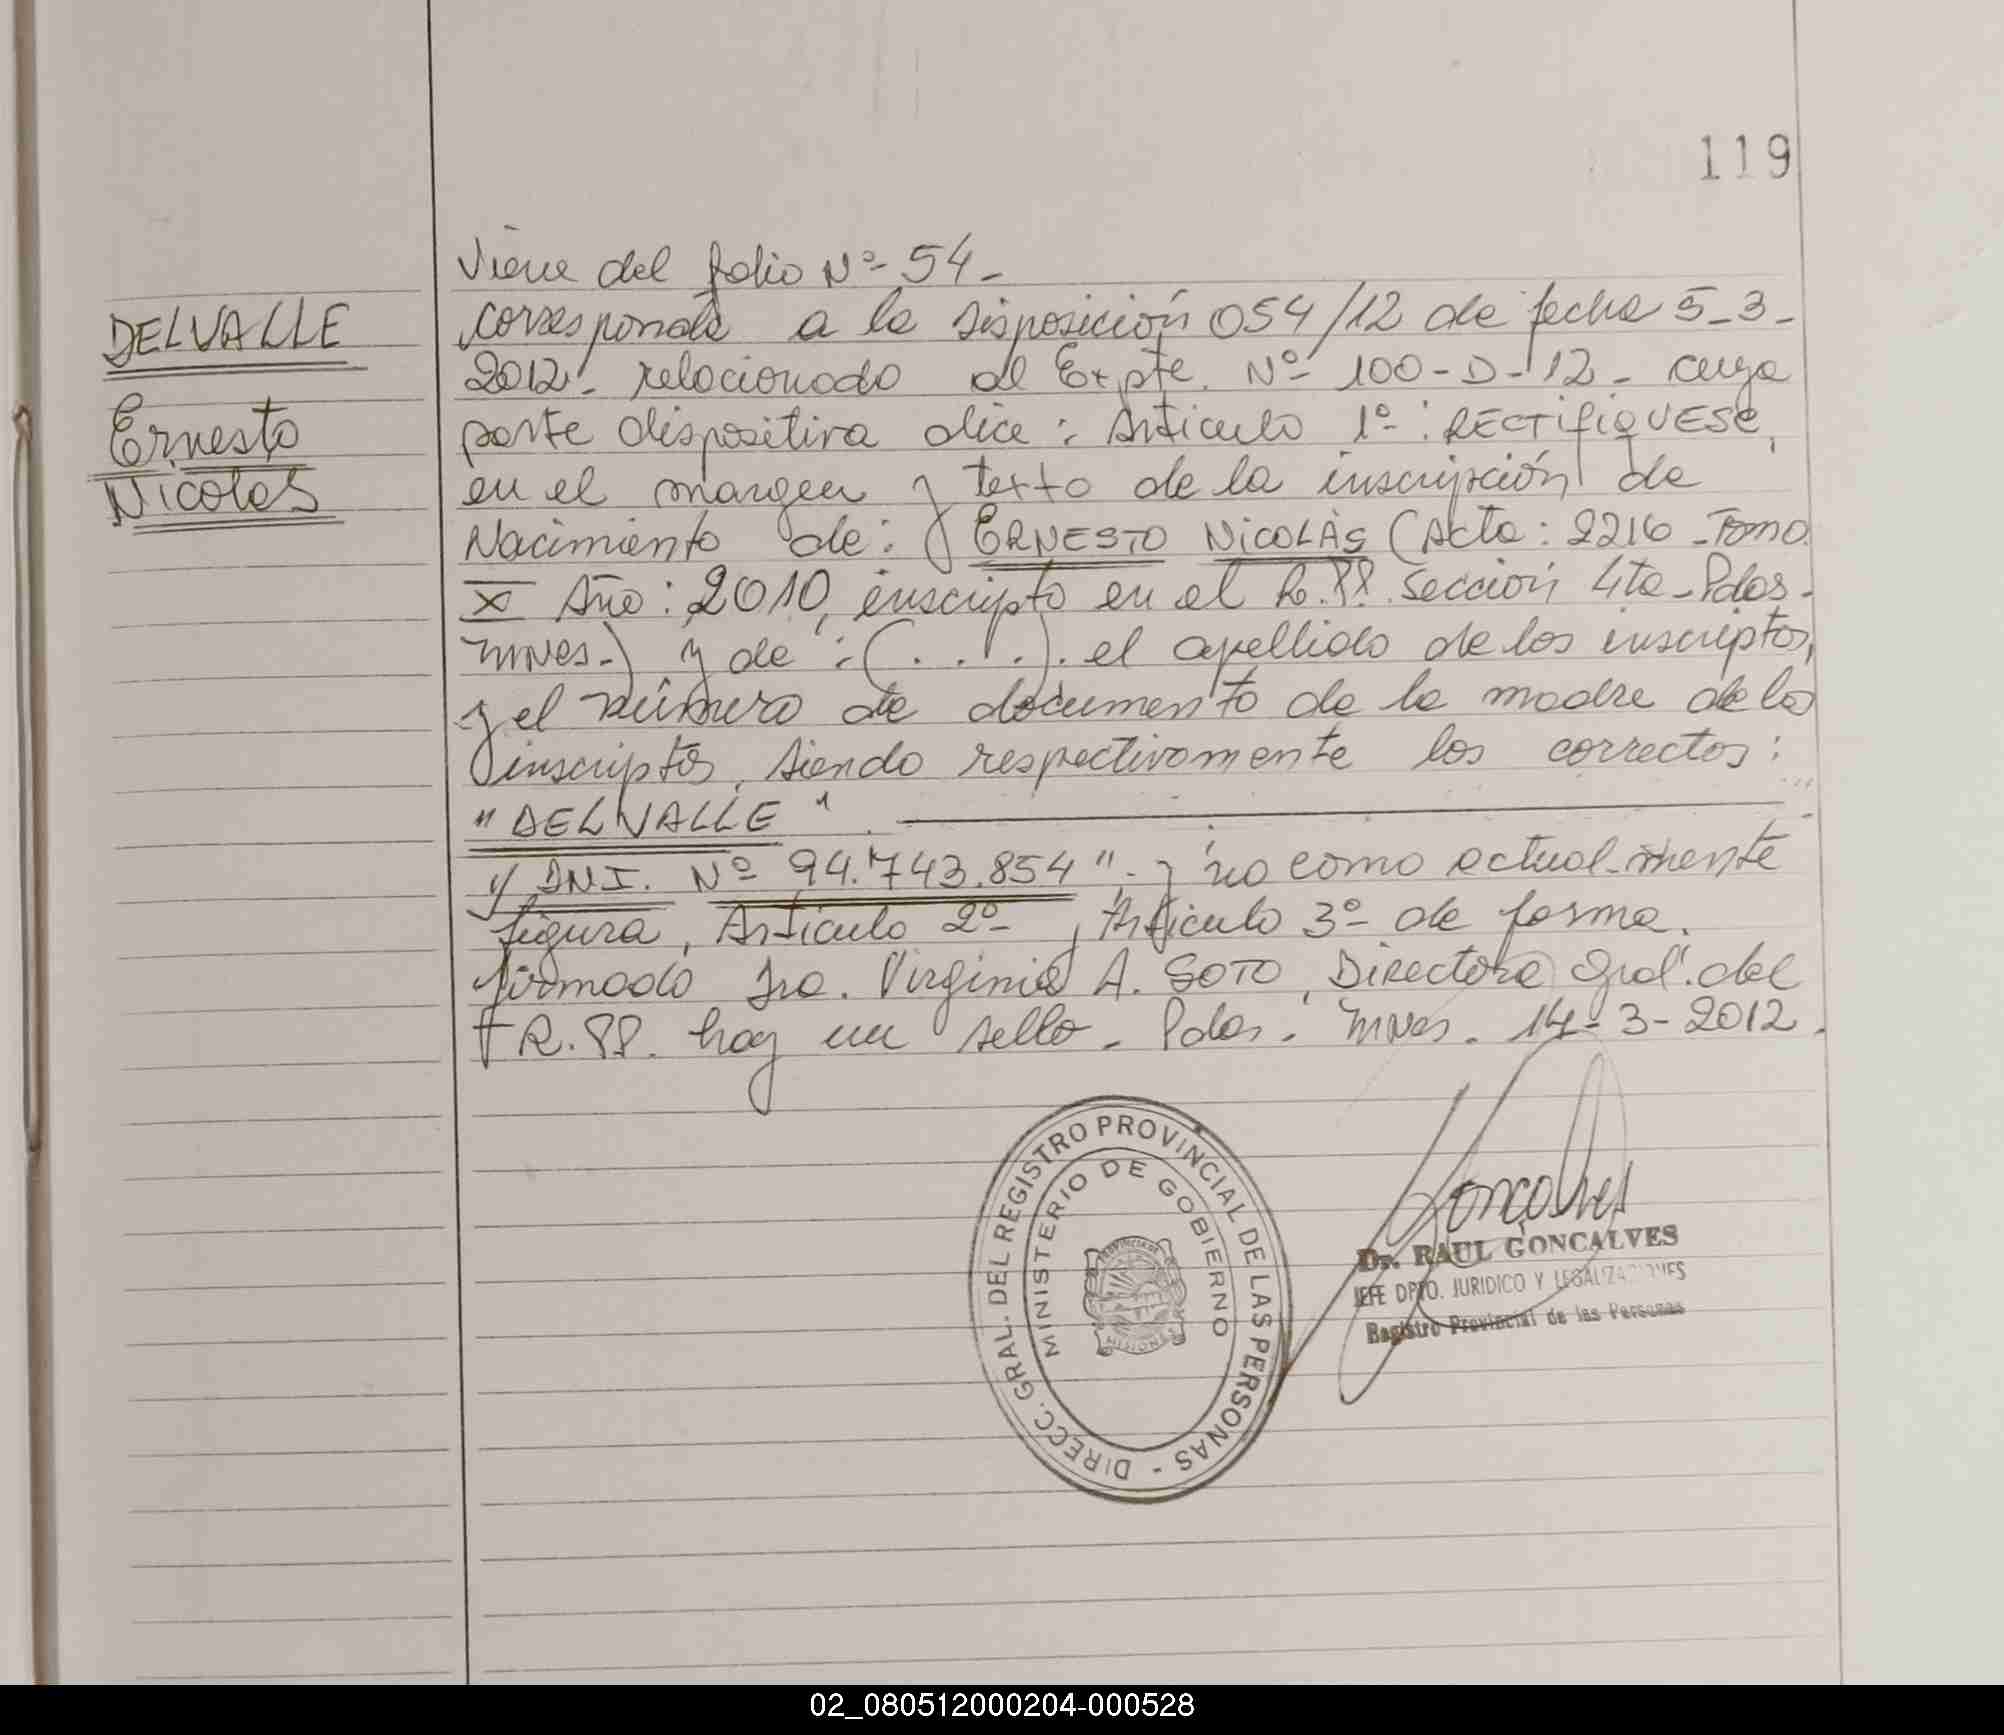 119
DELVALLE
Ernesto
Nicolas
Viene del folio Nº 54-
corresponde a la disposición 054/12 de fecha 5-3-
2012- relacionado al Expte. Nº 100-D-12- cuya
parte dispositiva dice: Artículo 1º: RECTIFIQUESE,
en el margen y texto de la inscripción de
Nacimiento de: ERNESTO NICOLÁS (Acta: 2216 -Tomo
X Año: 2010, inscripto en el R.PP. Sección 4ta-Pdas-
Mnes-) y de: (...). el apellido de los inscriptos,
y el número de documento de la madre de los
inscriptos, siendo respectivamente los correctos:
"DELVALLE".
y DNI. Nº 94.743.854"- y no como actual-mente
figura, Artículo 2º-, Artículo 3º- de forma.
firmado Sra. Virginia A. SOTO, Directora Gral. del
R.PP. hay un sello- Pdas. Mnes. 14-3-2012.
DIRECC. GRAL. DEL REGISTRO PROVINCIAL DE LAS PERSONAS -
MINISTERIO DE GOBIERNO
PROVINCIA DE
MISIONES
Gonçalves
Dr. RAUL GONCALVES
JEFE DPTO. JURIDICO Y LEGALIZACIONES
Registro Provincial de las Personas
02_080512000204-000528